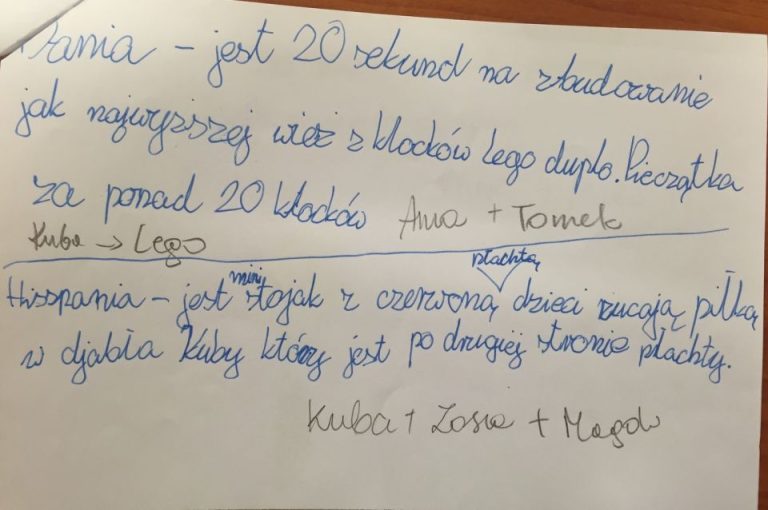 Dania - jest 20 sekund na zbudowanie
jak najwyższej wież z klocków Lego duplo. Pieczątka
za ponad 20 klocków Anna + Tomek
Kuba → Lego
płachtą
mini
Hisspania - jest stojak z czerwoną dzieci rzucają piłką
w djabła Kuby który jest po drugiej stronie płachty.
Kuba + Zosia + Magda